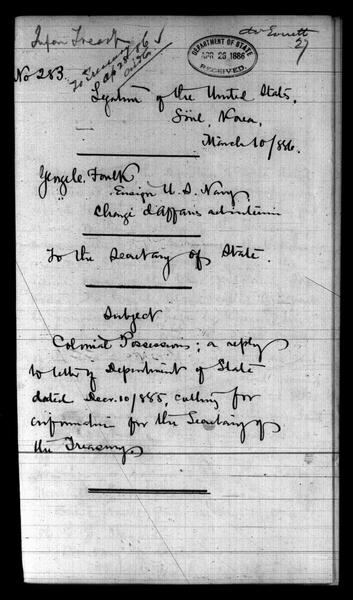 Mr Everett
27
DEPARTMENT OF STATE
APR 26 1886
RECEIVED.
To Treasury
No 283.
Legation of the United States,
Söul Korea,
March 10/886.
George C. Foulk
Ensign U. S. Navy
Chargé d'Affaires ad interim
To the Secretary of State.
Subject
Colonial Possessions; a reply
to letter of Department of State
dated Decr. 10/885, calling for
information for the Secretary of
the Treasury